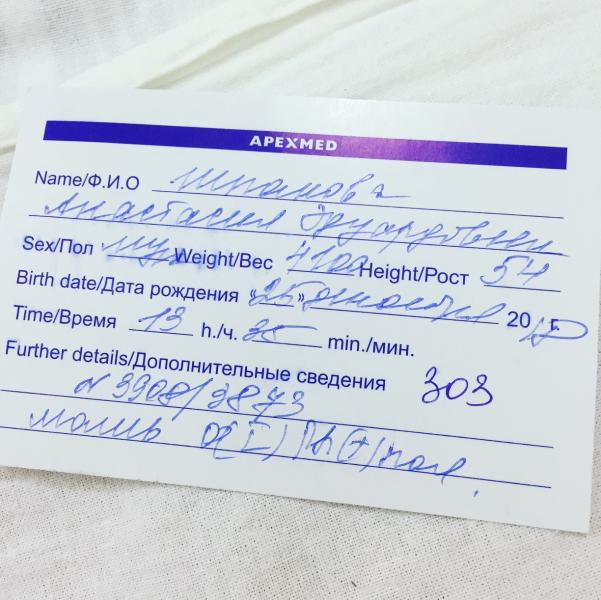 APEXMED
Name/Ф.И.О
Анастасия Эдуардовны
Sex/Пол муж Weight/Вес 4100 Height/Рост 54
Birth date/Дата рождения «25» 20 г.
Time/Время 13 h./ч. 35 min./мин.
Further details/Дополнительные сведения 303
N 3908/3873
O(I) Rh(+) пол.